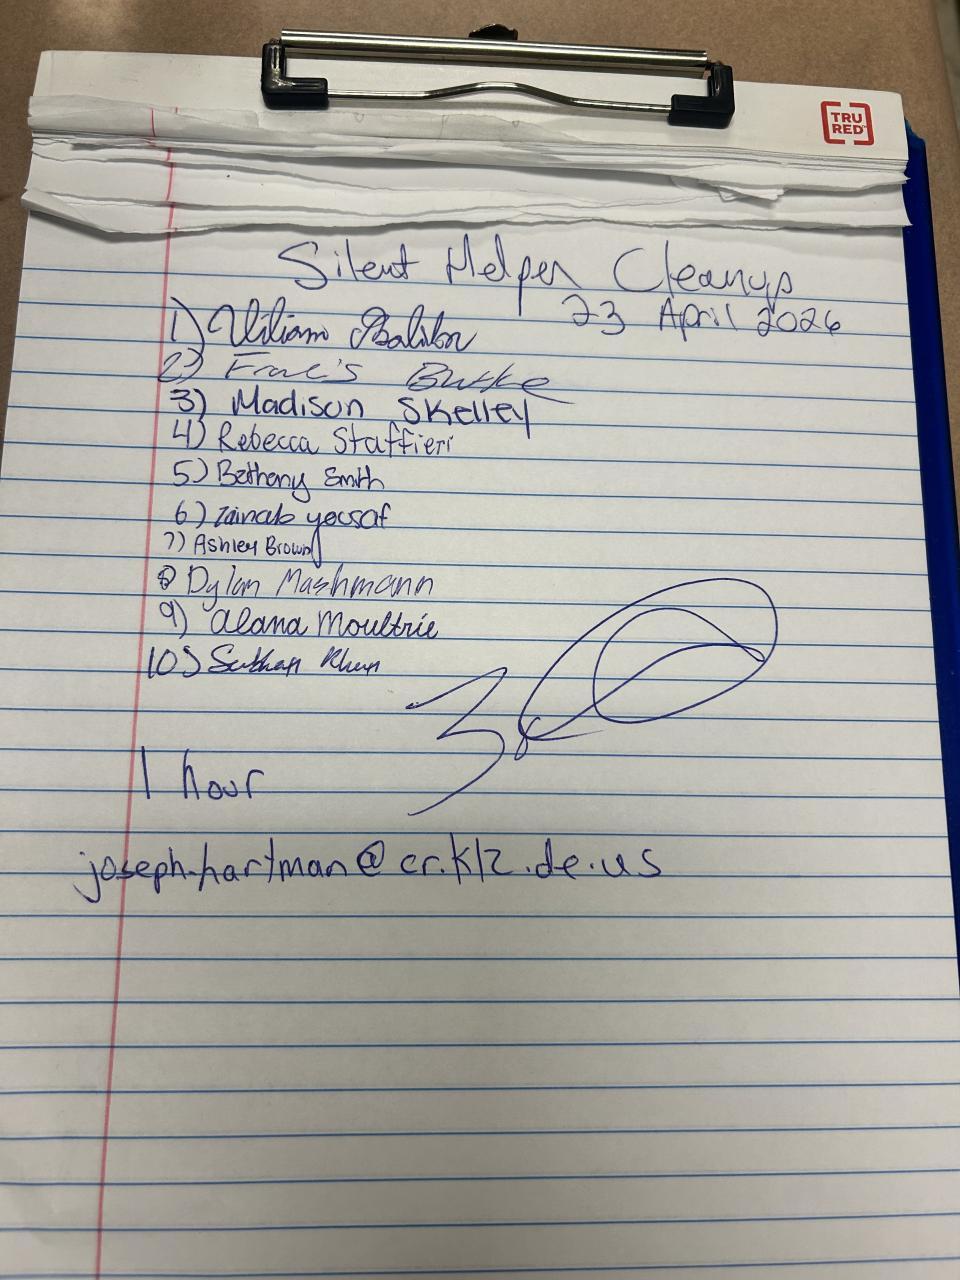 TRU
RED
Silent Helper Cleanup
23 April 2026
1) William
2) Burke
3) Madison Skelley
4) Rebecca Staffieri
5) Bethany Smith
6) Zainab yousaf
7) Ashley Brown
8 Dylan Mashmann
9) Alana Moultrie
10) Khan
1 hour
joseph.hartman@cr.k12.de.us